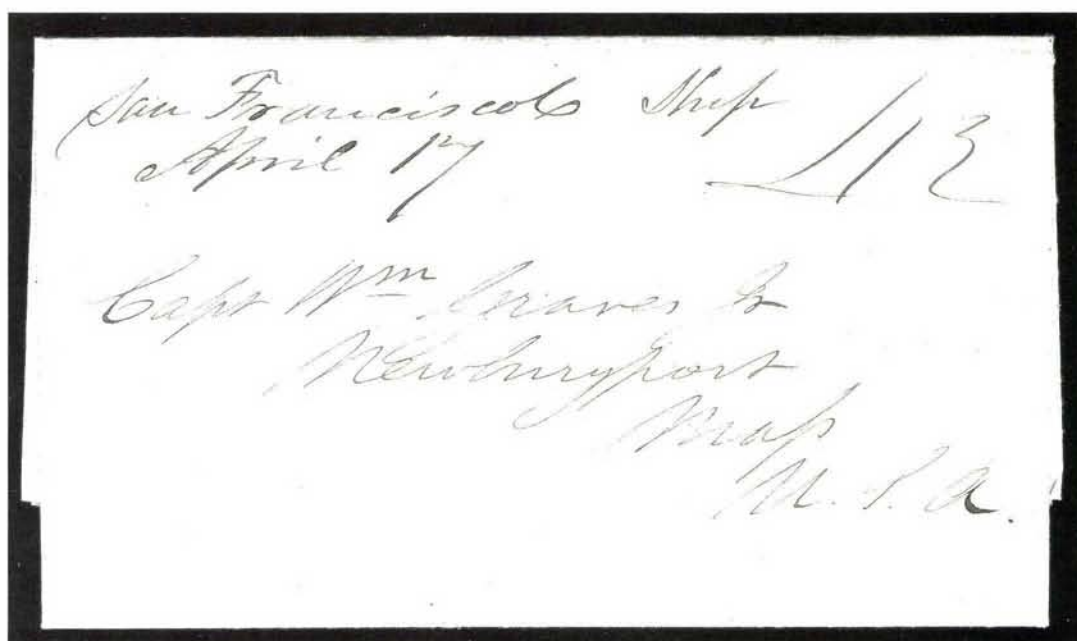 San Francisco Ca Ship 42
April 17
Capt Wm Graves Jr
Newburyport
Mass
U. S. A.